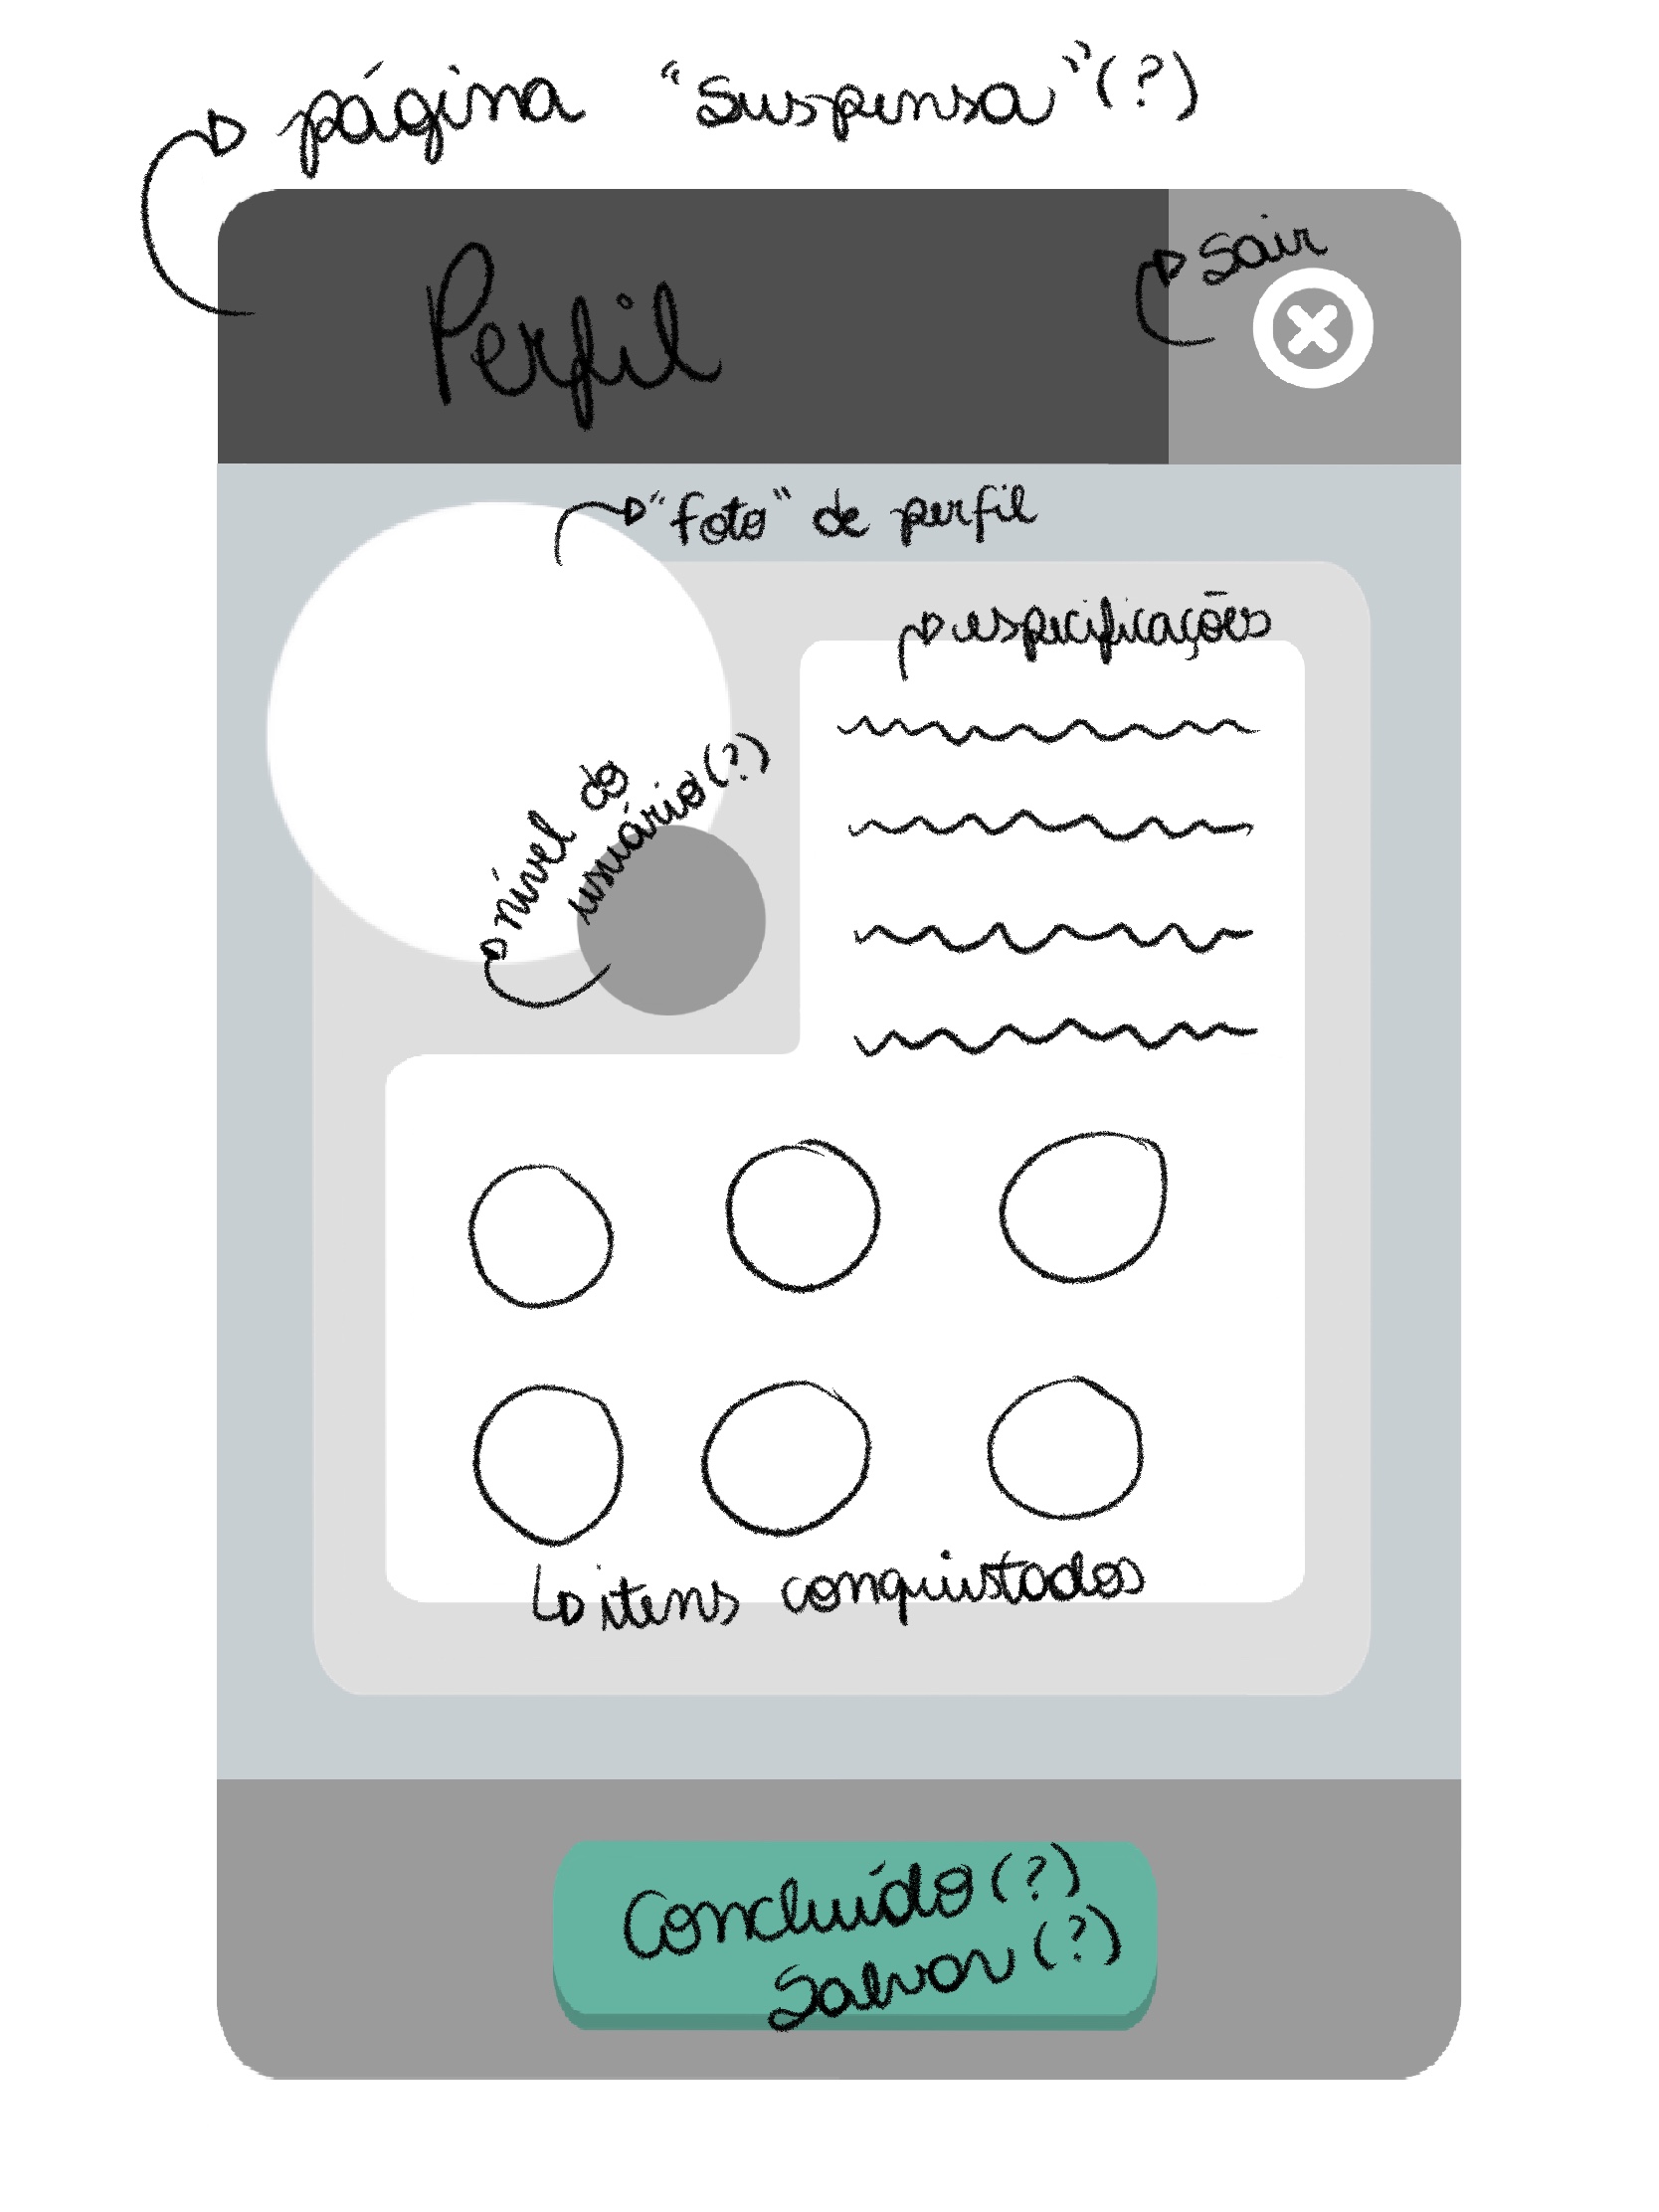 página "suspensa" (?)
sair
Perfil
"foto" de perfil
especificações
nível do
usuário (?)
itens conquistados
Concluído (?)
Salvar (?)